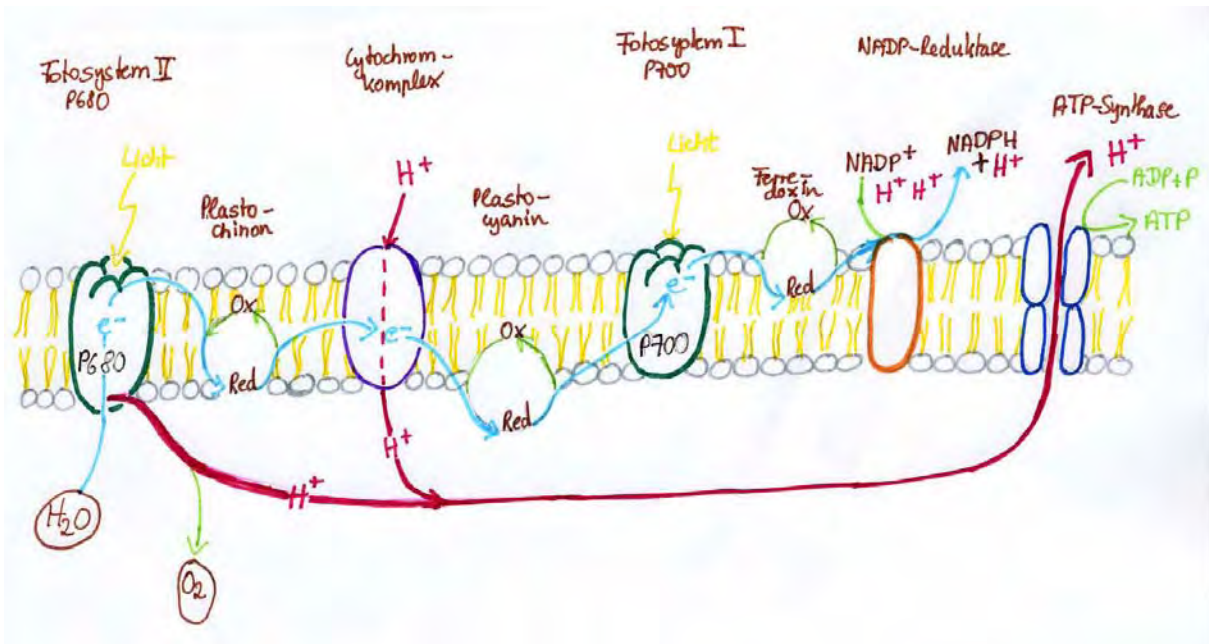 Fotosystem II
P680
Cytochrom-
komplex
Fotosystem I
P700
NADP-Reduktase
ATP-Synthase
Licht
H+
Plasto-
chinon
Plasto-
cyanin
Licht
Ferre-
doxin
NADP+
H+ H+
NADPH
+ H+
H+
ADP+P
ATP
e-
P680
Ox
Red
e-
Ox
Red
e-
P700
Ox
Red
H+
H+
H2O
O2